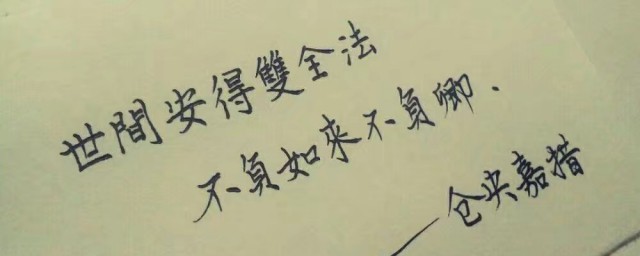 世間安得雙全法
不負如來不負卿.
——仓央嘉措